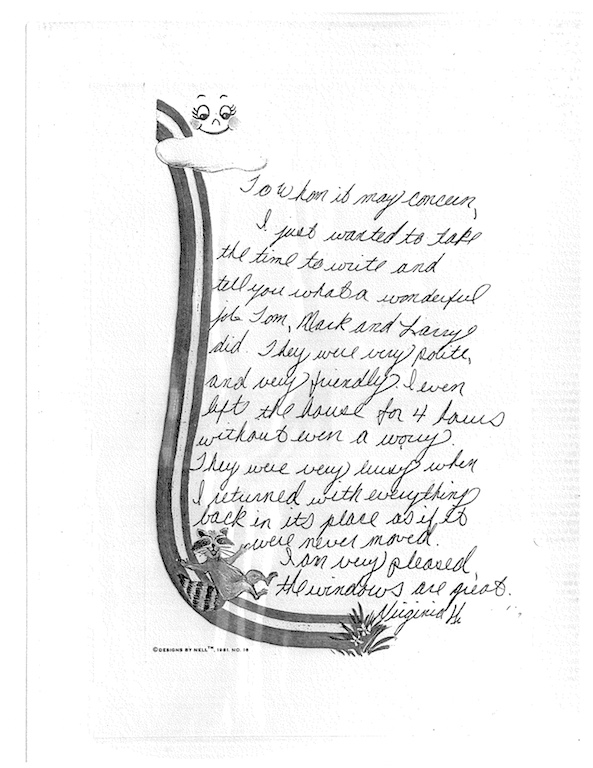 To whom it may concern,
I just wanted to take
the time to write and
tell you what a wonderful
job Tom, Mark and Larry
did. They were very polite,
and very friendly. I even
left the house for 4 hours
without even a worry.
They were very busy when
I returned with everything
back in its place as if it
were never moved.
I am very pleased,
the windows are great.
Virginia H.
©DESIGNS BY NELL™, 1981 NO. 16